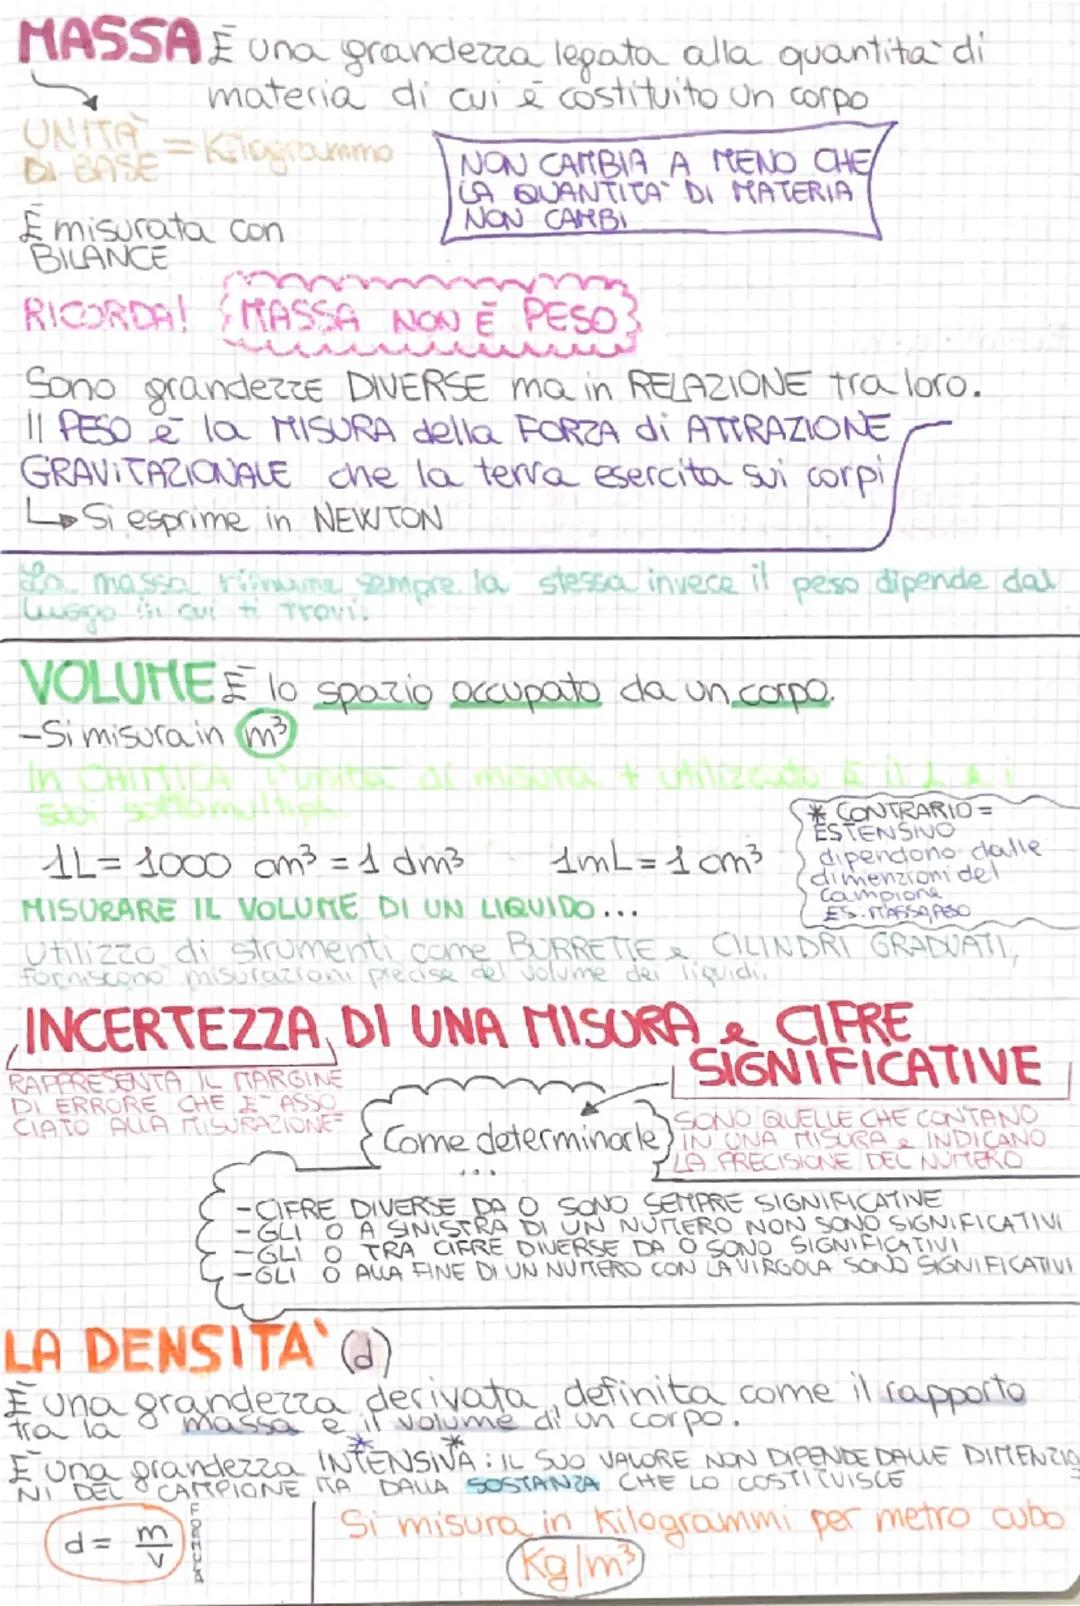 MASSA È una grandezza legata alla quantità di
materia di cui è costituito un corpo
UNITÀ DI BASE = Kilogrammo
NON CAMBIA A MENO CHE
LA QUANTITÀ DI MATERIA
NON CAMBI
È misurata con
BILANCE
RICORDA! MASSA NON È PESO
Sono grandezze DIVERSE ma in RELAZIONE tra loro.
Il PESO è la MISURA della FORZA di ATTRAZIONE
GRAVITAZIONALE che la terra esercita sui corpi
↳ Si esprime in NEWTON
La massa rimane sempre la stessa invece il peso dipende dal
luogo in cui ti trovi.
VOLUME È lo spazio occupato da un corpo.
-Si misura in m³
In CHIMICA l'unità di misura + utilizzata è il L e i
suoi sottomultipli
1L = 1000 cm³ = 1 dm³ 1mL = 1 cm³
* CONTRARIO =
ESTENSIVO
dipendono dalle
dimenzioni del
campione
ES. MASSA, PESO
MISURARE IL VOLUME DI UN LIQUIDO...
Utilizzo di strumenti come BURRETTE e CILINDRI GRADUATI,
forniscono misurazioni precise del volume dei liquidi.
INCERTEZZA DI UNA MISURA e CIFRE
SIGNIFICATIVE
RAPPRESENTA IL MARGINE
DI ERRORE CHE E' ASSO
CIATO ALLA MISURAZIONE
SONO QUELLE CHE CONTANO
IN UNA MISURA e INDICANO
LA PRECISIONE DEL NUMERO
Come determinarle
...
-CIFRE DIVERSE DA 0 SONO SEMPRE SIGNIFICATIVE
-GLI 0 A SINISTRA DI UN NUMERO NON SONO SIGNIFICATIVI
-GLI 0 TRA CIFRE DIVERSE DA 0 SONO SIGNIFICATIVI
-GLI 0 ALLA FINE DI UN NUMERO CON LA VIRGOLA SONO SIGNIFICATIVI
LA DENSITA' (d)
È una grandezza derivata, definita come il rapporto
tra la massa e il volume di un corpo.
È una grandezza INTENSIVA*: IL SUO VALORE NON DIPENDE DALLE DIMENZIO
NI DEL CAMPIONE MA DALLA SOSTANZA CHE LO COSTITUISCE
d = m/v
FORMULA
Si misura in Kilogrammi per metro cubo
Kg/m³